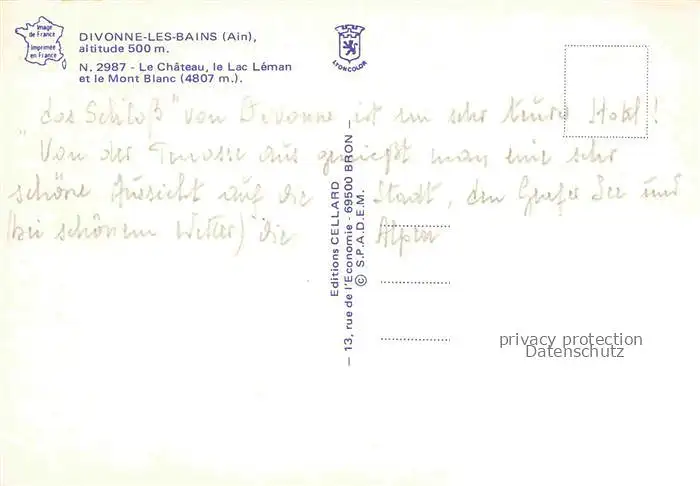 Image
de France
Imprimée
en France
DIVONNE-LES-BAINS (Ain),
altitude 500 m.
N. 2987 - Le Château, le Lac Léman
et le Mont Blanc (4807 m.).
LYONCOLOR
"das Schloß" von Divonne ist ein sehr teures Hotel!
Von der Terrasse aus genießt man eine sehr
schöne Aussicht auf die Stadt, den Genfer See und
(bei schönem Wetter) die Alpen
Editions CELLARD
— 13, rue de l'Economie - 69500 BRON —
© S.P.A.D.E.M.
privacy protection
Datenschutz